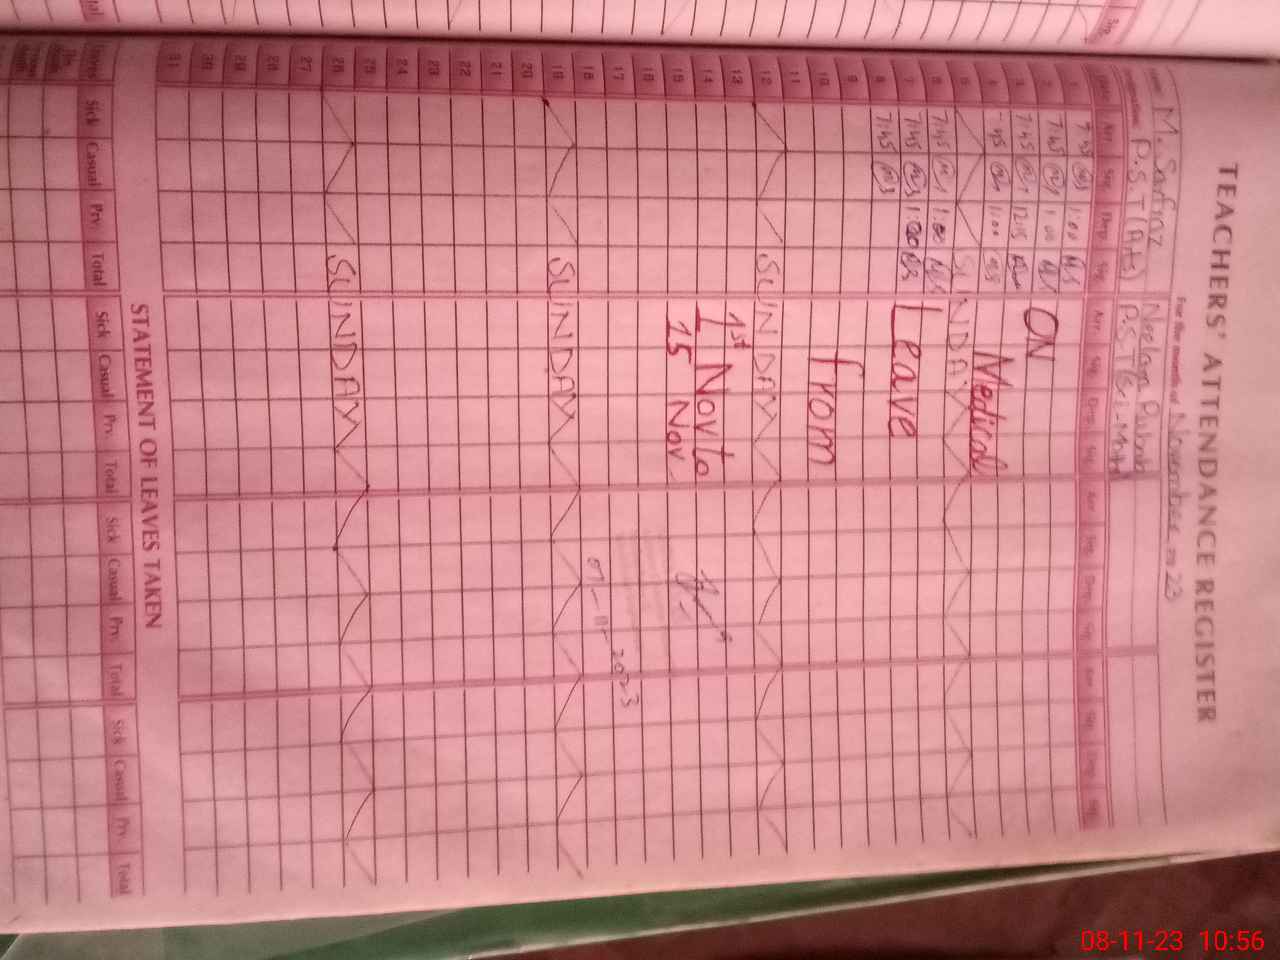 TEACHERS' ATTENDANCE REGISTER
For the month of November 23
Name M. Sarfraz Neelam
P.S.T (Arts) P.S.T (Sci-Math)
Date Arr. Sig. Dep. Sig. Arr. Sig. Dep. Sig. Arr. Sig. Dep. Sig. Arr. Sig. Dep. Sig.
1 7:45 1:00 M.S
2 7:45 1:00 M.S ON
3 7:45 12:15
4 7:45 11:00 M.S Medical
5 SUNDAY
6 7:45 1:00 M.S
7 7:45 1:00 M.S Leave
8 7:45
9
10 from
11
12 SUNDAY
13 1st
14 1 Nov to
15 15 Nov
16
17
18 01-11-2023
19 SUNDAY
20
21
22
23
24
25
26 SUNDAY
27
28
29
30
31
STATEMENT OF LEAVES TAKEN
Leaves Sick Casual Prv. Total Sick Casual Prv. Total Sick Casual Prv. Total Sick Casual Prv. Total
08-11-23 10:56